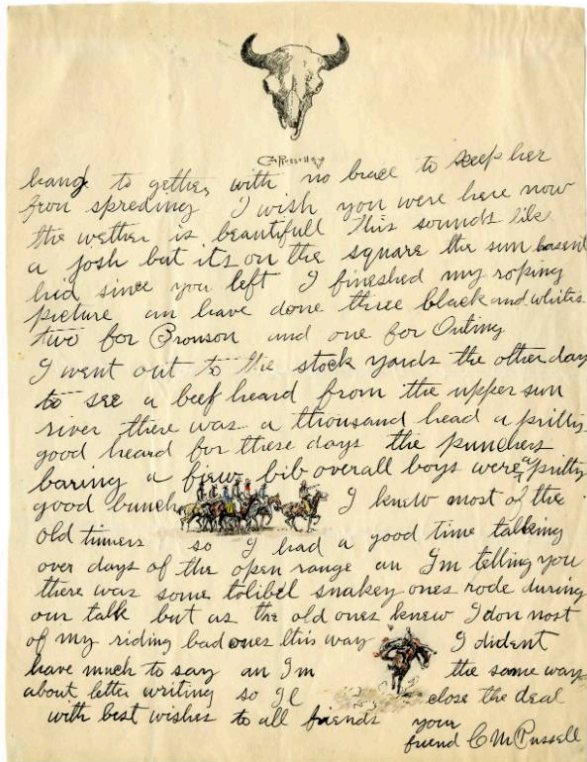 CM Russell
hang to gether with no brace to keep her
fron spreding I wish you were here now
the wether is beautifull This sounds like
a josh but its on the square the sun hasent
hid since you left I fineshed my roping
picture an have done three black and whites
two for Bronson and one for Outing
I went out to the stock yards the other day
to see a beef heard from the upper sun
river there was a thousand head a pritty
good heard for these days the punchers
baring a fiew bib overall boys were a pritty
good bunch I knew most of the
old timers so I had a good time talking
over days of the open range an Im telling you
there was some tolibel snakey ones rode during
our talk but as the old ones knew I don most
of my riding bad ones this way I dident
have much to say an Im the same way
about letter writing so Il close the deal
with best wishes to all friends your
friend C M Russell